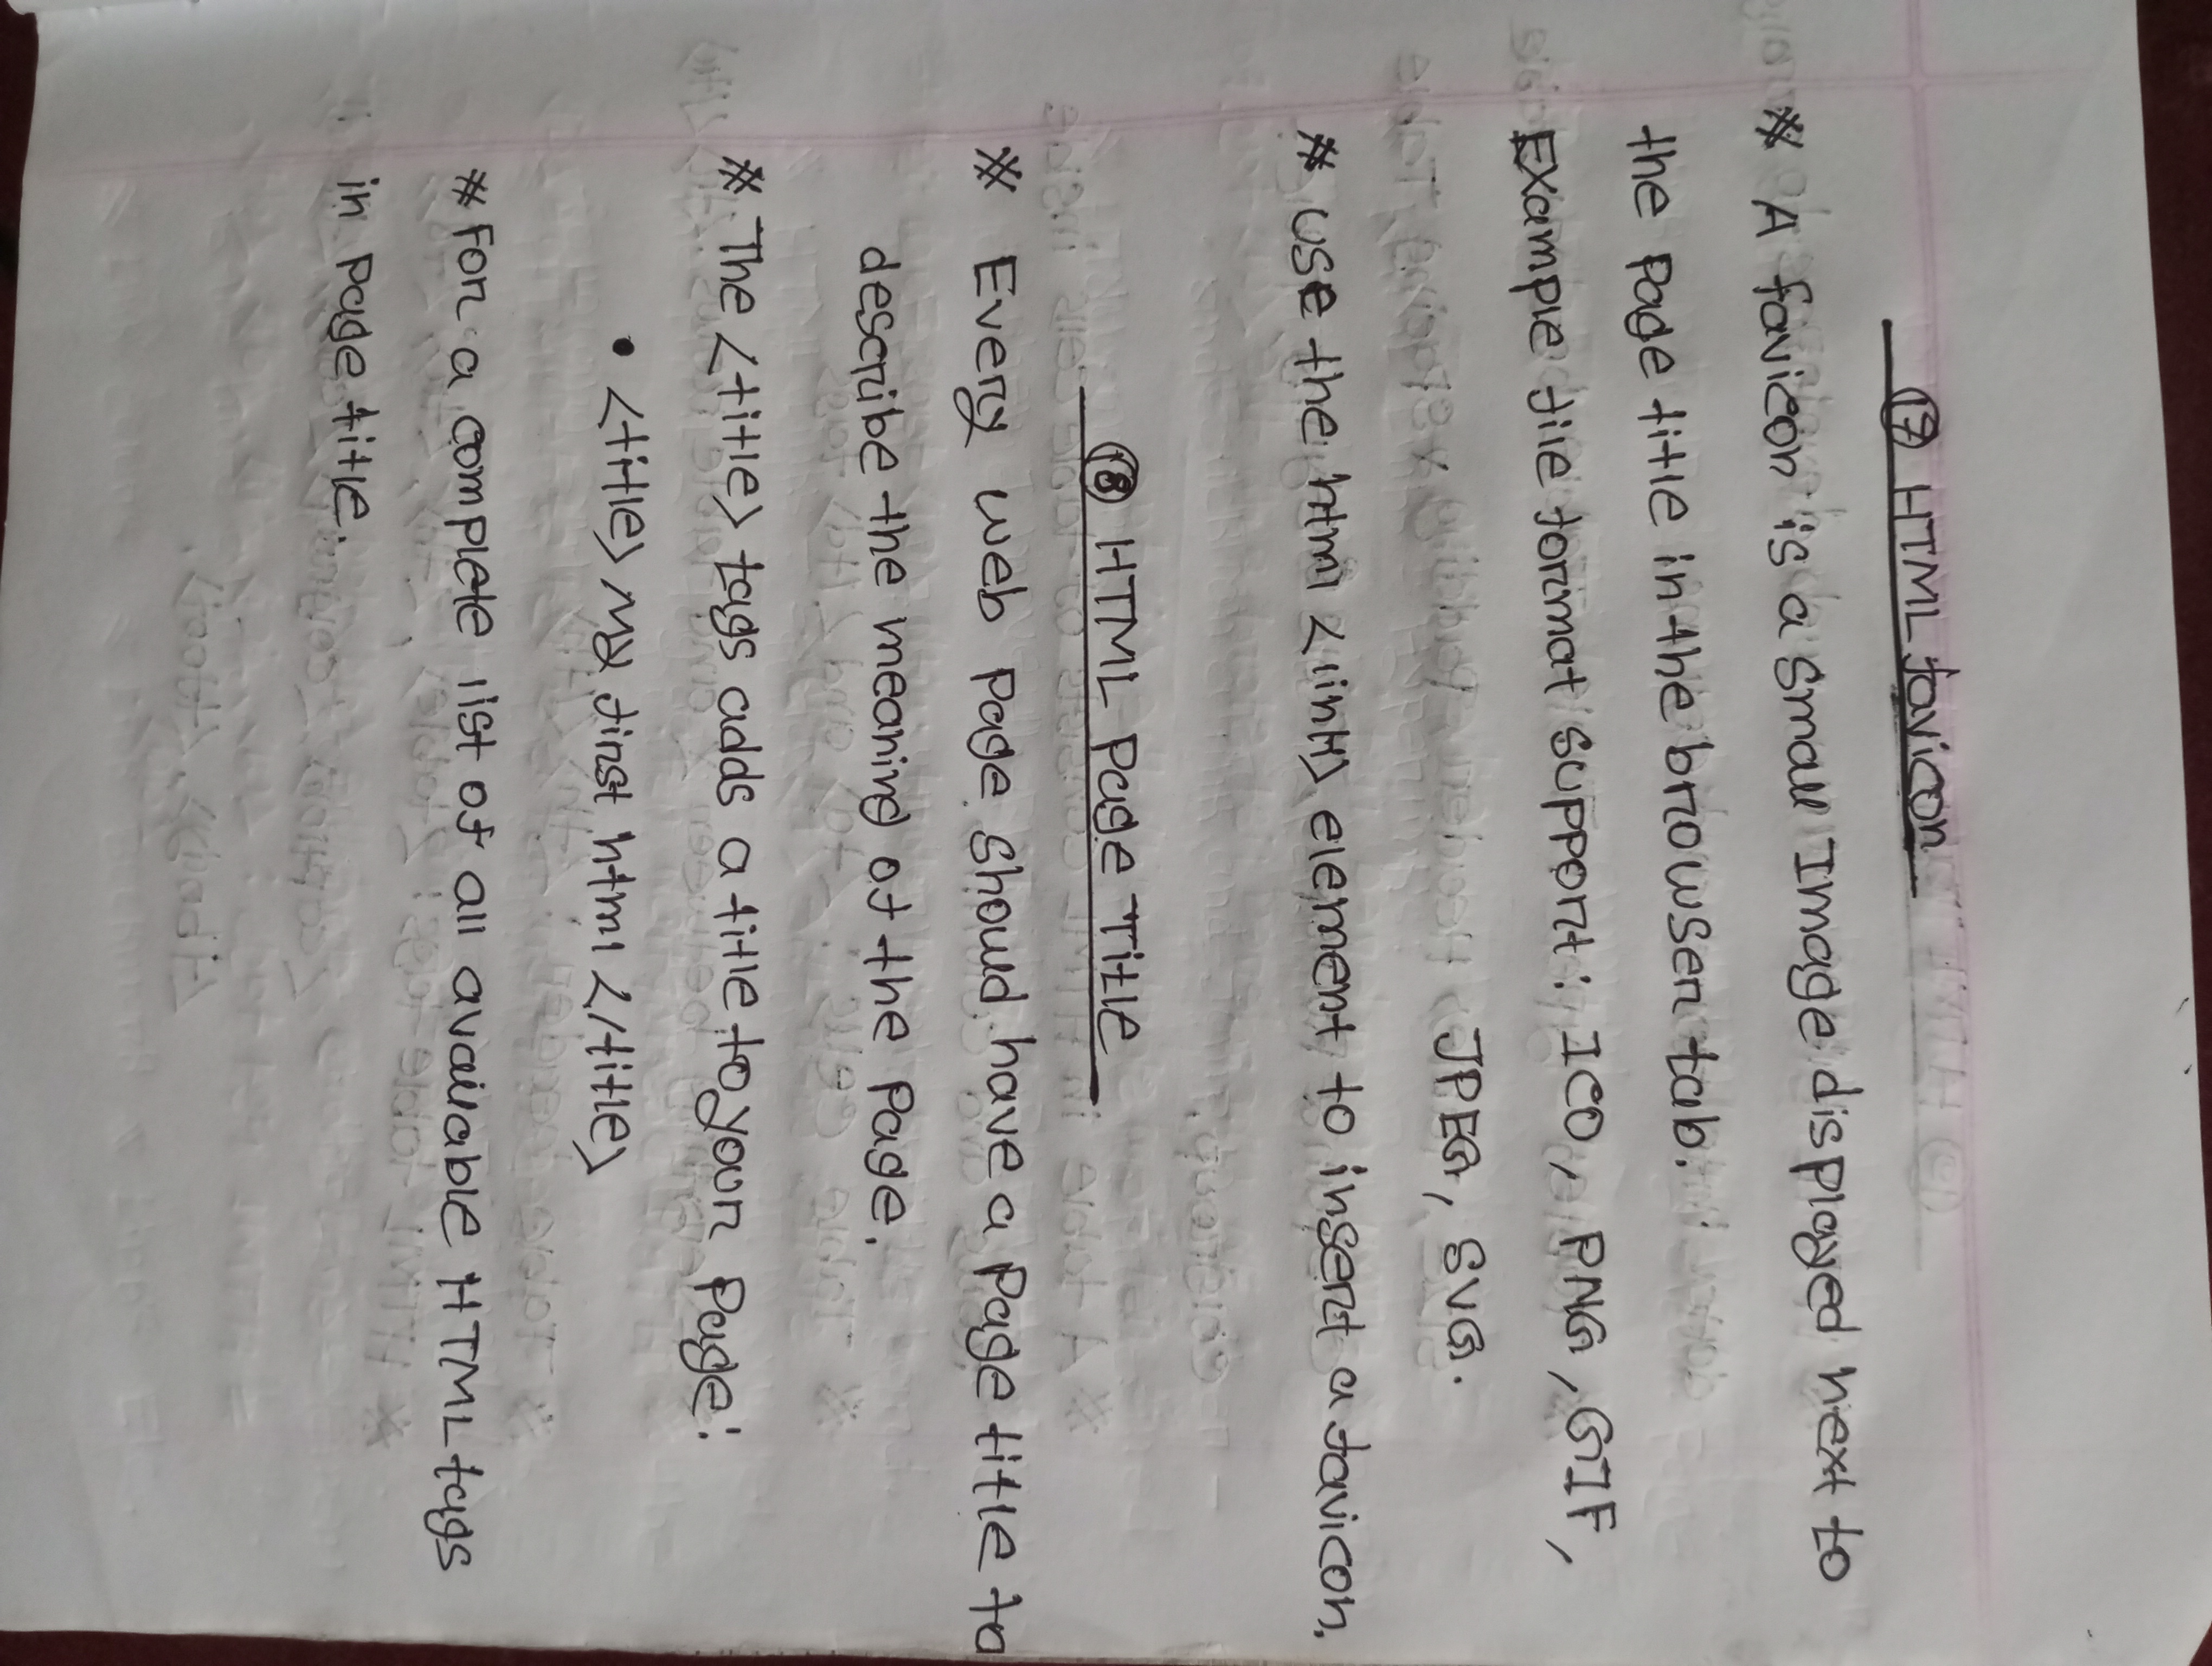 17 HTML favicon
* A favicon is a small Image displayed next to
the page title in the browser tab.
Example file format support: ICO, PNG, GIF,
JPEG, SVG.
* use the html <link> element to insert a favicon.
18 HTML Page Title
* Every web page should have a page title to
describe the meaning of the page.
* The <title> tags adds a title to your page:
• <title> My first html </title>
* For a complete list of all available HTML tags
in page title.